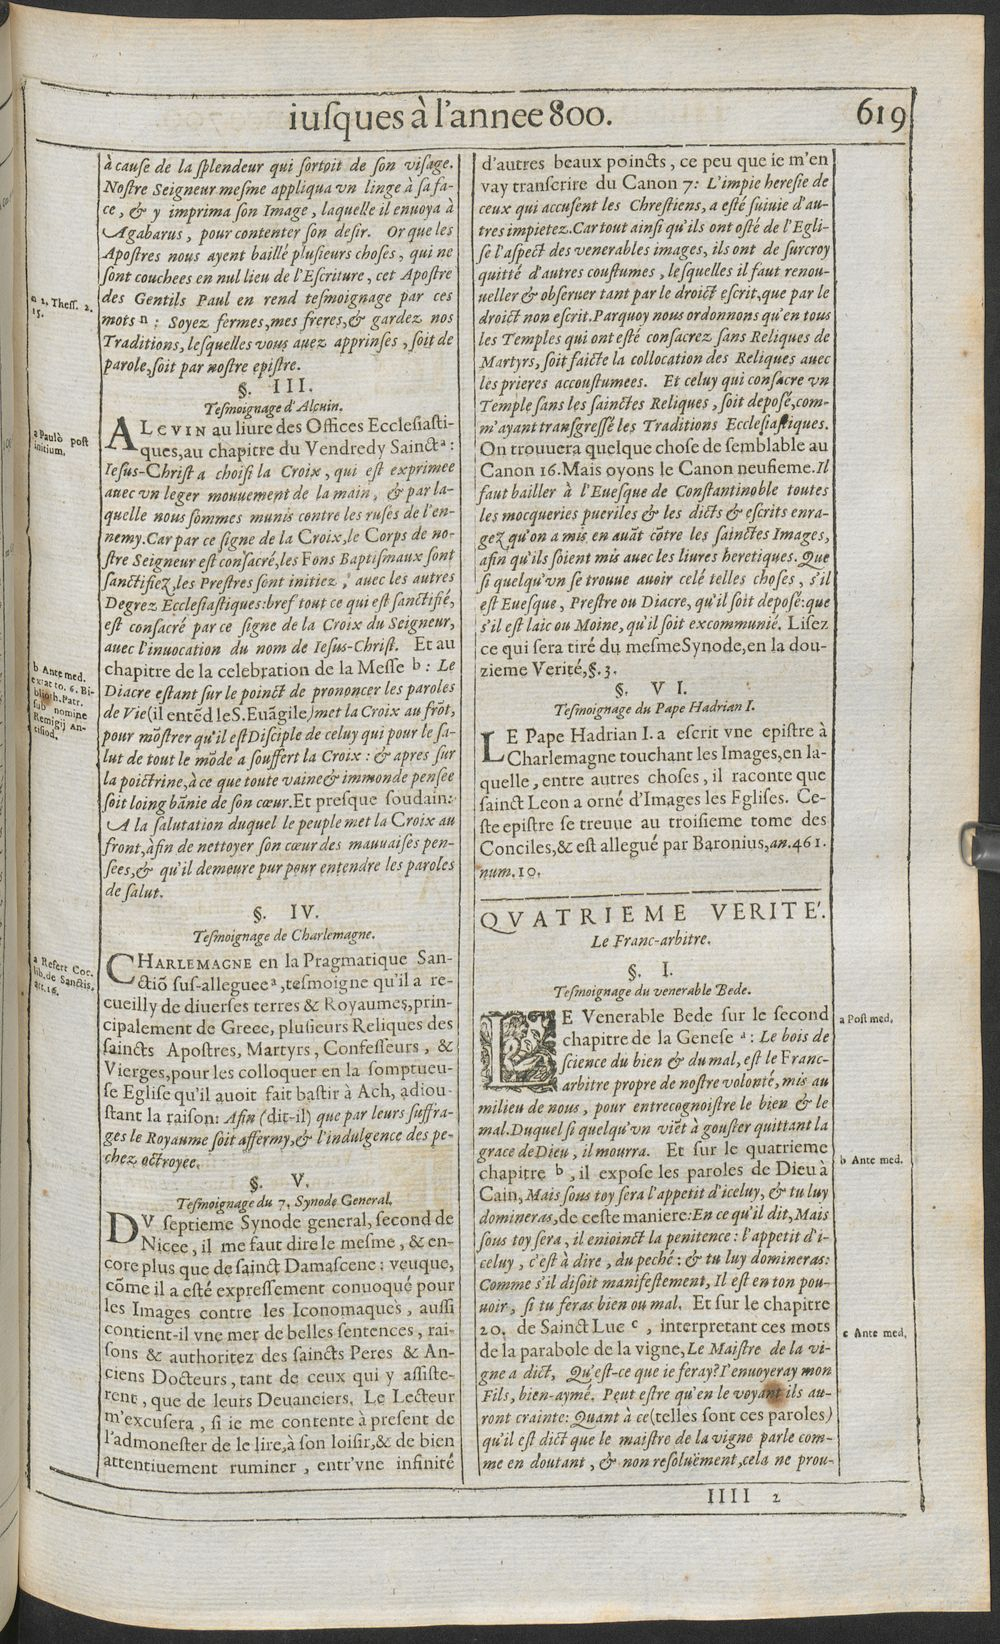 iuſques à l'annee 800.
619
à cauſe de la ſplendeur qui ſortoit de ſon viſage.
Noſtre Seigneur meſme appliqua vn linge à ſa fa-
ce, & y imprima ſon Image, laquelle il enuoya à
Agabarus, pour contenter ſon deſir. Or que les
Apoſtres nous ayent baillé pluſieurs choſes, qui ne
ſont couchees en nul lieu de l'Eſcriture, cet Apoſtre
des Gentils Paul en rend teſmoignage par ces
mots n : Soyez fermes, mes freres, & gardez nos
Traditions, leſquelles vous auez apprinſes, ſoit de
parole, ſoit par noſtre epiſtre.
n 2, Theſſ. 2.
15.
§. III.
Teſmoignage d'Alcuin.
ALCVIN au liure des Offices Eccleſiaſti-
ques, au chapitre du Vendredy Sainct a :
Ieſus-Chriſt a choiſi la Croix, qui eſt exprimee
auec vn leger mouuement de la main, & par la-
quelle nous ſommes munis contre les ruſes de l'en-
nemy. Car par ce ſigne de la Croix, le Corps de no-
ſtre Seigneur eſt conſacré, les Fons Baptiſmaux ſont
ſanctifiez, les Preſtres ſont initiez, auec les autres
Degrez Eccleſiaſtiques: bref tout ce qui eſt ſanctifié,
eſt conſacré par ce ſigne de la Croix du Seigneur,
auec l'inuocation du nom de Ieſus-Chriſt. Et au
chapitre de la celebration de la Meſſe b : Le
Diacre eſtant ſur le poinct de prononcer les paroles
de Vie (il entẽd le S. Euãgile) met la Croix au frõt,
pour mõſtrer qu'il eſt Diſciple de celuy qui pour le ſa-
lut de tout le mõde a ſouffert la Croix : & apres ſur
la poictrine, à ce que toute vaine & immonde penſee
ſoit loing bãnie de ſon cœur. Et preſque ſoudain:
A la ſalutation duquel le peuple met la Croix au
front, àfin de nettoyer ſon cœur des mauuaiſes pen-
ſees, & qu'il demeure pur pour entendre les paroles
de ſalut.
a Paulò poſt
initium.
b Ante med.
extat to. 6. Bi-
blioth. Patr.
ſub nomine
Remigij An-
tiſiod.
§. IV.
Teſmoignage de Charlemagne.
CHARLEMAGNE en la Pragmatique San-
ctiõ ſus-alleguee a, teſmoigne qu'il a re-
cueilly de diuerſes terres & Royaumes, prin-
cipalement de Grece, pluſieurs Reliques des
ſaincts Apoſtres, Martyrs, Confeſſeurs, &
Vierges, pour les colloquer en la ſomptueu-
ſe Egliſe qu'il auoit fait baſtir à Ach, adiou-
ſtant la raiſon: Afin (dit-il) que par leurs ſuffra-
ges le Royaume ſoit affermy, & l'indulgence des pe-
chez octroyee.
a Refert Coc.
lib. de Sanctis.
art. 16.
§. V.
Teſmoignage du 7. Synode General.
DV ſeptieme Synode general, ſecond de
Nicee, il me faut dire le meſme, & en-
core plus que de ſainct Damaſcene: veuque,
cõme il a eſté expreſſement conuoqué pour
les Images contre les Iconomaques, auſſi
contient-il vne mer de belles ſentences, rai-
ſons & authoritez des ſaincts Peres & An-
ciens Docteurs, tant de ceux qui y aſſiſte-
rent, que de leurs Deuanciers. Le Lecteur
m'excuſera, ſi ie me contente à preſent de
l'admoneſter de le lire, à ſon loiſir, & de bien
attentiuement ruminer, entr'vne infinité
d'autres beaux poincts, ce peu que ie m'en
vay tranſcrire du Canon 7: L'impie hereſie de
ceux qui accuſent les Chreſtiens, a eſté ſuiuie d'au-
tres impietez. Car tout ainſi qu'ils ont oſté de l'Egli-
ſe l'aſpect des venerables images, ils ont de ſurcroy
quitté d'autres couſtumes, leſquelles il faut renou-
ueller & obſeruer tant par le droict eſcrit, que par le
droict non eſcrit. Parquoy nous ordonnons qu'en tous
les Temples qui ont eſté conſacrez ſans Reliques de
Martyrs, ſoit faicte la collocation des Reliques auec
les prieres accouſtumees. Et celuy qui conſacre vn
Temple ſans les ſainctes Reliques, ſoit depoſé, com-
m'ayant tranſgreſſé les Traditions Eccleſiaſtiques.
On trouuera quelque choſe de ſemblable au
Canon 16. Mais oyons le Canon neufieme. Il
faut bailler à l'Eueſque de Conſtantinoble toutes
les mocqueries pueriles & les dicts & eſcrits enra-
gez qu'on a mis en auãt cõtre les ſainctes Images,
afin qu'ils ſoient mis auec les liures heretiques. Que
ſi quelqu'vn ſe trouue auoir celé telles choſes, s'il
eſt Eueſque, Preſtre ou Diacre, qu'il ſoit depoſé: que
s'il eſt laic ou Moine, qu'il ſoit excommunié. Liſez
ce qui ſera tiré du meſme Synode, en la dou-
zieme Verité, §. 3.
§. VI.
Teſmoignage du Pape Hadrian I.
LE Pape Hadrian I. a eſcrit vne epiſtre à
Charlemagne touchant les Images, en la-
quelle, entre autres choſes, il raconte que
ſainct Leon a orné d'Images les Egliſes. Ce-
ſte epiſtre ſe treuue au troiſieme tome des
Conciles, & eſt allegué par Baronius, an. 461.
num. 10.
QVATRIEME VERITE'.
Le Franc-arbitre.
§. I.
Teſmoignage du venerable Bede.
LE Venerable Bede ſur le ſecond
chapitre de la Geneſe a : Le bois de
ſcience du bien & du mal, eſt le Franc-
arbitre propre de noſtre volonté, mis au
milieu de nous, pour entrecognoiſtre le bien & le
mal. Duquel ſi quelqu'vn viẽt à gouſter quittant la
grace de Dieu, il mourra. Et ſur le quatrieme
chapitre b, il expoſe les paroles de Dieu à
Cain, Mais ſous toy ſera l'appetit d'iceluy, & tu luy
domineras, de ceſte maniere: En ce qu'il dit, Mais
ſous toy ſera, il enioinct la penitence: l'appetit d'i-
celuy, c'eſt à dire, du peché: & tu luy domineras:
Comme s'il diſoit manifeſtement, Il eſt en ton pou-
uoir, ſi tu feras bien ou mal. Et ſur le chapitre
20. de Sainct Luc c, interpretant ces mots
de la parabole de la vigne, Le Maiſtre de la vi-
gne a dict, Qu'eſt-ce que ie feray? I'enuoyeray mon
Fils, bien-aymé. Peut eſtre qu'en le voyant ils au-
ront crainte: Quant à ce (telles ſont ces paroles)
qu'il eſt dict que le maiſtre de la vigne parle com-
me en doutant, & non reſoluëment, cela ne prou-
a Poſt med.
b Ante med.
c Ante med.
IIII 2